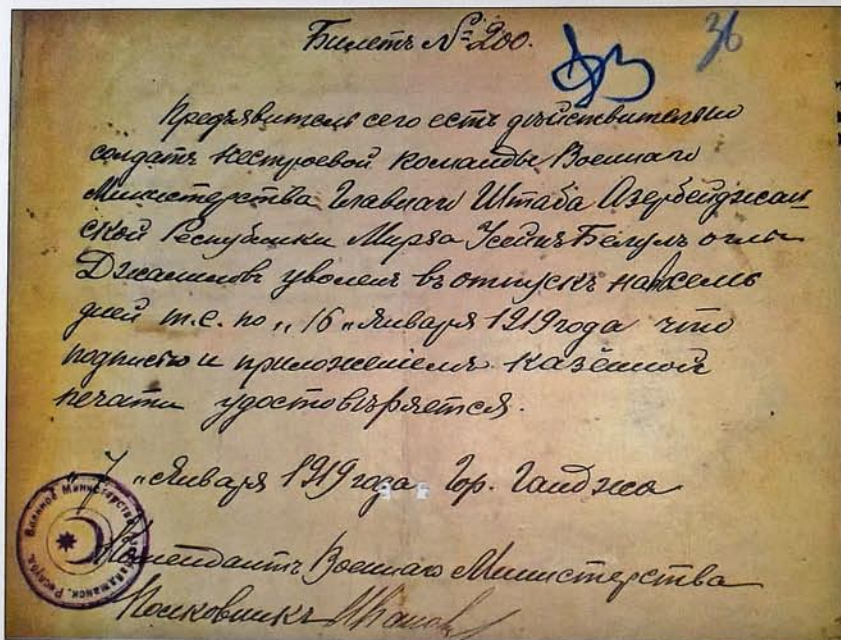 Билетъ № 200.
36
Предъявитель сего есть дѣйствительно
солдатъ нестроевой команды Военнаго
Министерства Главнаго Штаба Азербейджан-
ской Республики Мирза Усейнъ оглы
Джалиловъ уволенъ въ отпускъ на семь
дней т.е. по „16„ Января 1919 года что
подписью и приложеніемъ казённой
печати удостовѣряется.
„7„ Января 1919 года Гор. Ганджа
Военное Министерство
Комендантъ Военнаго Министерства
Полковникъ